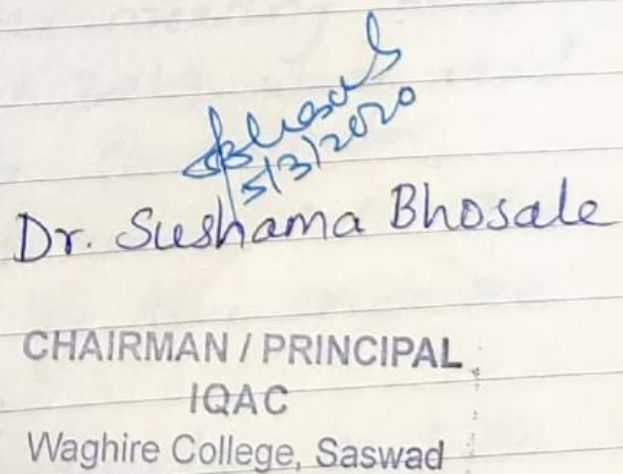 Bhosale
5/3/2020
Dr. Sushama Bhosale
CHAIRMAN / PRINCIPAL
IQAC
Waghire College, Saswad